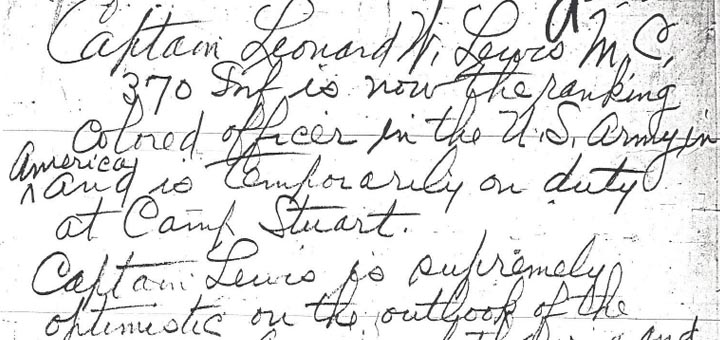 Captain Leonard W. Lewis M.C.
370 Inf is now the ranking
colored officer in the U.S. Army in
America
and is temporarily on duty
at Camp Stuart.
Captain Lewis is supremely
optimistic on the outlook of the
and